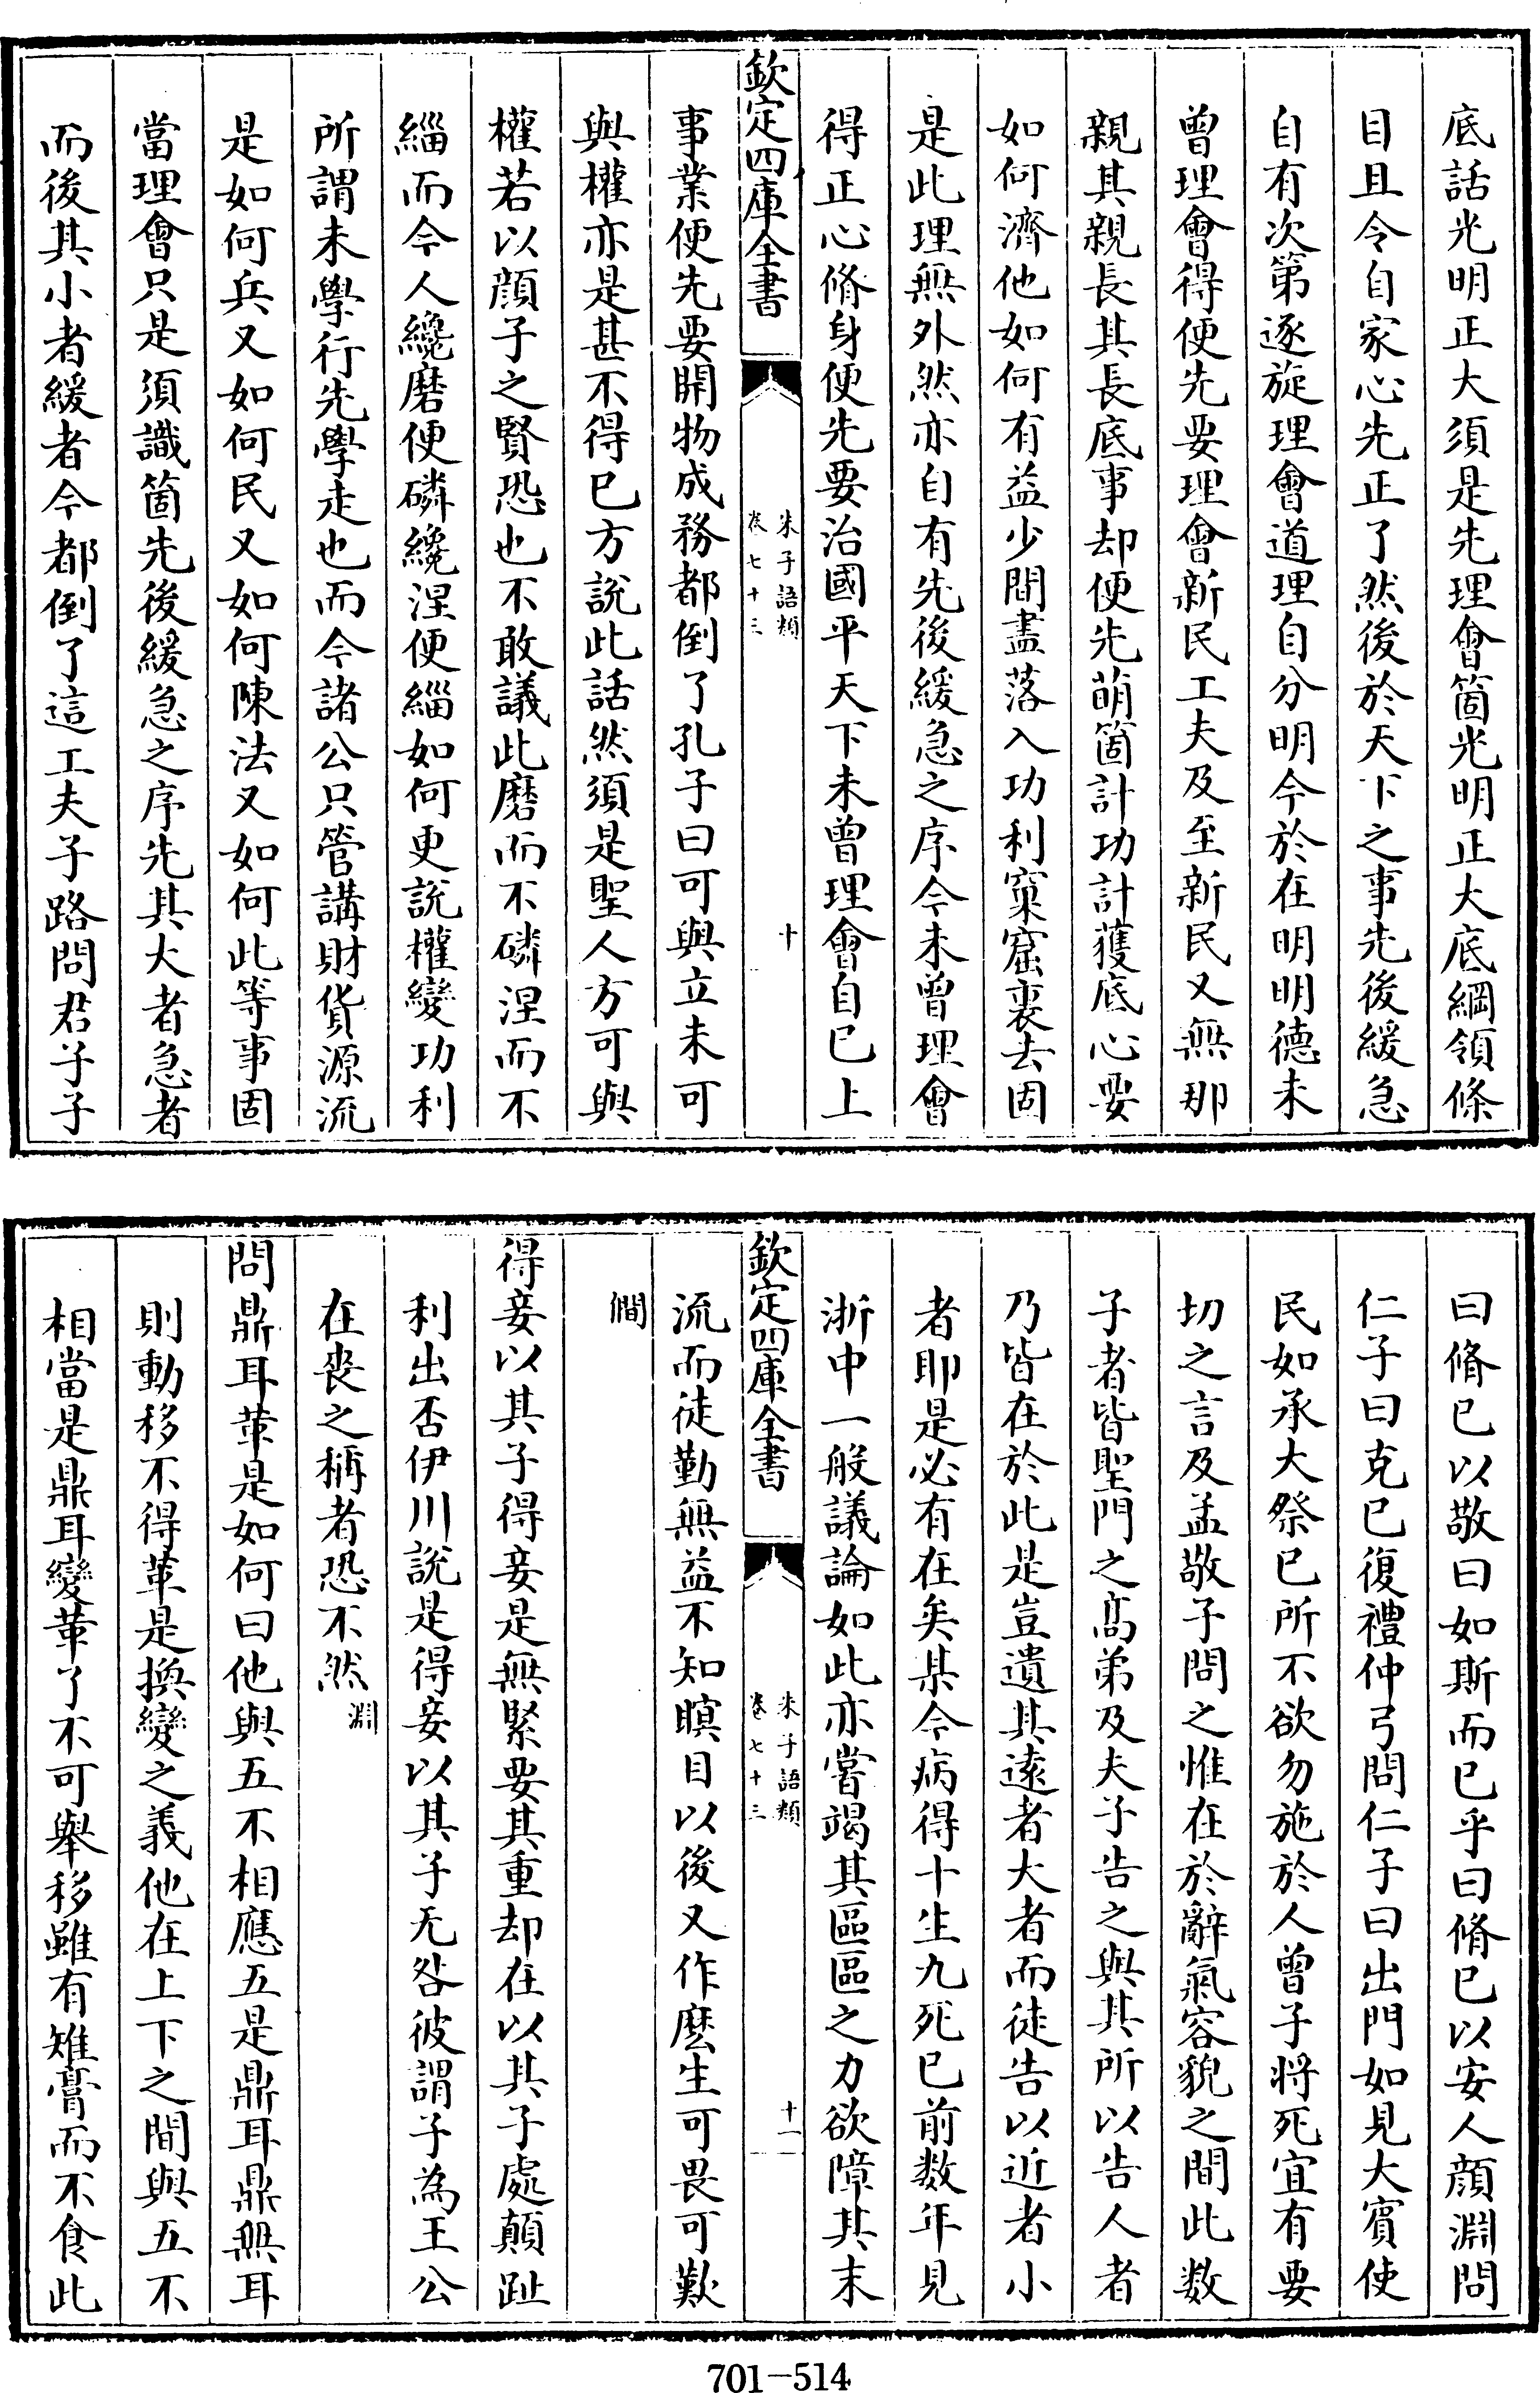 底話光明正大須是先理會箇光明正大底綱領條
目且令自家心先正了然後於天下之事先後緩急
自有次第逐旋理會道理自分明今於在明明德未
曾理會得便先要理會新民工夫及至新民又無那
親其親長其長底事却便先萌箇計功計獲底心要
如何濟他如何有益少間盡落入功利窠窟裏去固
是此理無外然亦自有先後緩急之序今未曾理會
得正心脩身便先要治國平天下未曾理會自已上
欽定四庫全書
朱子語類
卷七十三
十
事業便先要開物成務都倒了孔子曰可與立未可
與權亦是甚不得已方說此話然須是聖人方可與
權若以顔子之賢恐也不敢議此磨而不磷涅而不
緇而今人纔磨便磷纔涅便緇如何更說權變功利
所謂未學行先學走也而今諸公只管講財貨源流
是如何兵又如何民又如何陳法又如何此等事固
當理會只是須識箇先後緩急之序先其大者急者
而後其小者緩者今都倒了這工夫子路問君子子
曰脩已以敬曰如斯而已乎曰脩已以安人顔淵問
仁子曰克已復禮仲弓問仁子曰出門如見大賓使
民如承大祭已所不欲勿施於人曾子將死宜有要
切之言及孟敬子問之惟在於辭氣容貌之間此數
子者皆聖門之髙弟及夫子告之與其所以告人者
乃皆在於此是豈遺其逺者大者而徒告以近者小
者耶是必有在矣某今病得十生九死已前数年見
浙中一般議論如此亦嘗竭其區區之力欲障其末
欽定四庫全書
朱子語類
卷七十三
十一
流而徒勤無益不知瞑目以後又作麽生可畏可歎
僴
得妾以其子得妾是無緊要其重却在以其子處顛趾
利出否伊川說是得妾以其子无咎彼謂子為王公
在喪之稱者恐不然 淵
問鼎耳革是如何曰他與五不相應五是鼎耳鼎無耳
則動移不得革是換變之義他在上下之間與五不
相當是鼎耳變革了不可舉移雖有雉膏而不食此
701-514